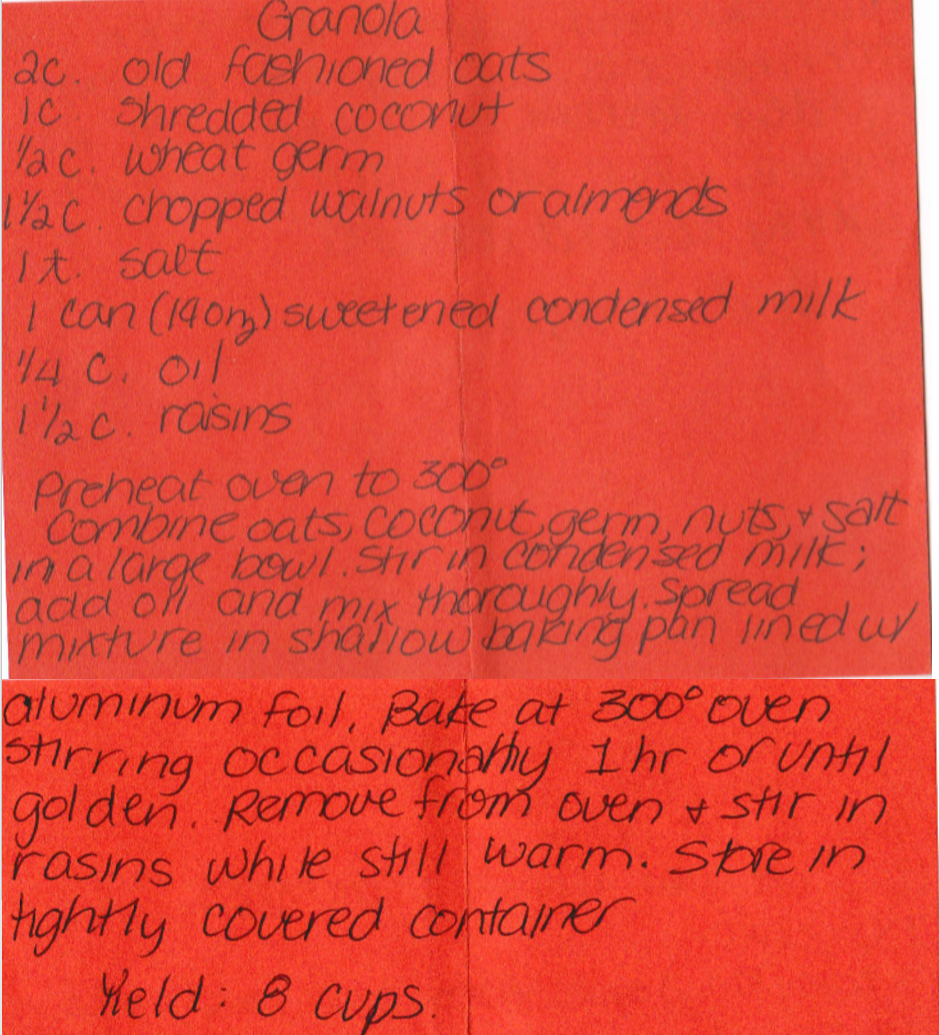 Granola
2c. old fashioned oats
1c. shredded coconut
1/2 c. wheat germ
1 1/2 c. chopped walnuts or almonds
1 t. salt
1 can (14 oz) sweetened condensed milk
1/4 c. oil
1 1/2 c. raisins
Preheat oven to 300°
Combine oats, coconut, germ, nuts, + salt
in a large bowl. Stir in condensed milk;
add oil and mix thoroughly. Spread
mixture in shallow baking pan lined w/
aluminum foil. Bake at 300° oven
stirring occasionally 1 hr or until
golden. Remove from oven + stir in
rasins while still warm. Store in
tightly covered container
Yield: 8 cups.